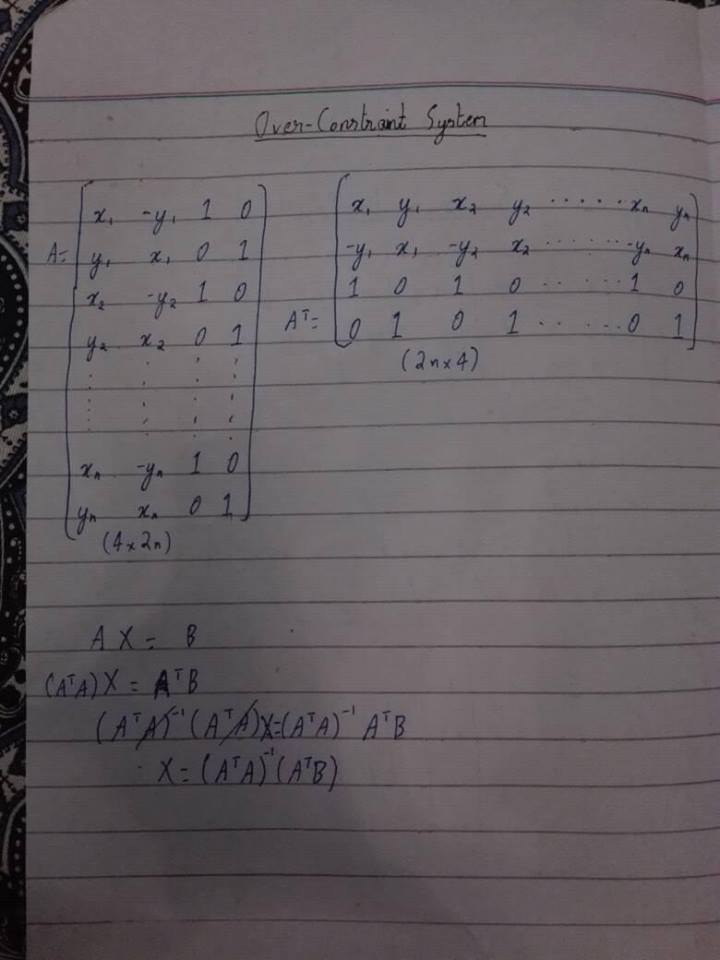 Over-Constraint System
A= [ x₁ -y₁ 1 0
y₁ x₁ 0 1
x₂ -y₂ 1 0
y₂ x₂ 0 1
⋮ ⋮ ⋮ ⋮
xₙ -yₙ 1 0
yₙ xₙ 0 1 ]
(4×2n)
Aᵀ= [ x₁ y₁ x₂ y₂ ...... xₙ yₙ
-y₁ x₁ -y₂ x₂ ...... -yₙ xₙ
1 0 1 0 ...... 1 0
0 1 0 1 ...... 0 1 ]
(2n×4)
A X = B
(AᵀA)X = AᵀB
(AᵀA)⁻¹(AᵀA)X=(AᵀA)⁻¹ AᵀB
X=(AᵀA)⁻¹(AᵀB)